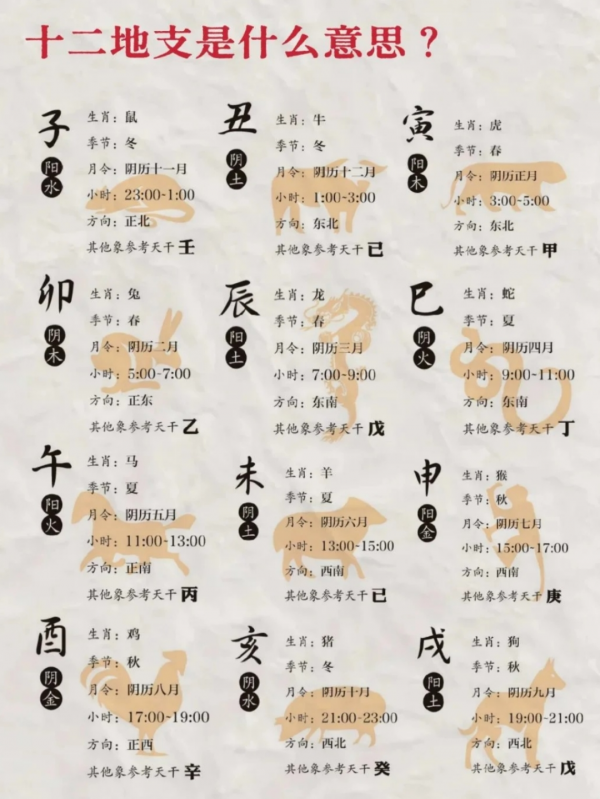 十二地支是什么意思？
子
阳水
生肖：鼠
季节：冬
月令：阴历十一月
小时：23:00-1:00
方向：正北
其他象参考天干壬
丑
阴土
生肖：牛
季节：冬
月令：阴历十二月
小时：1:00-3:00
方向：东北
其他象参考天干己
寅
阳木
生肖：虎
季节：春
月令：阴历正月
小时：3:00-5:00
方向：东北
其他象参考天干甲
卯
阴木
生肖：兔
季节：春
月令：阴历二月
小时：5:00-7:00
方向：正东
其他象参考天干乙
辰
阳土
生肖：龙
季节：春
月令：阴历三月
小时：7:00-9:00
方向：东南
其他象参考天干戊
巳
阴火
生肖：蛇
季节：夏
月令：阴历四月
小时：9:00-11:00
方向：东南
其他象参考天干丁
午
阳火
生肖：马
季节：夏
月令：阴历五月
小时：11:00-13:00
方向：正南
其他象参考天干丙
未
阴土
生肖：羊
季节：夏
月令：阴历六月
小时：13:00-15:00
方向：西南
其他象参考天干己
申
阳金
生肖：猴
季节：秋
月令：阴历七月
小时：15:00-17:00
方向：西南
其他象参考天干庚
酉
阴金
生肖：鸡
季节：秋
月令：阴历八月
小时：17:00-19:00
方向：正西
其他象参考天干辛
亥
阴水
生肖：猪
季节：冬
月令：阴历十月
小时：21:00-23:00
方向：西北
其他象参考天干癸
戌
阳土
生肖：狗
季节：秋
月令：阴历九月
小时：19:00-21:00
方向：西北
其他象参考天干戊